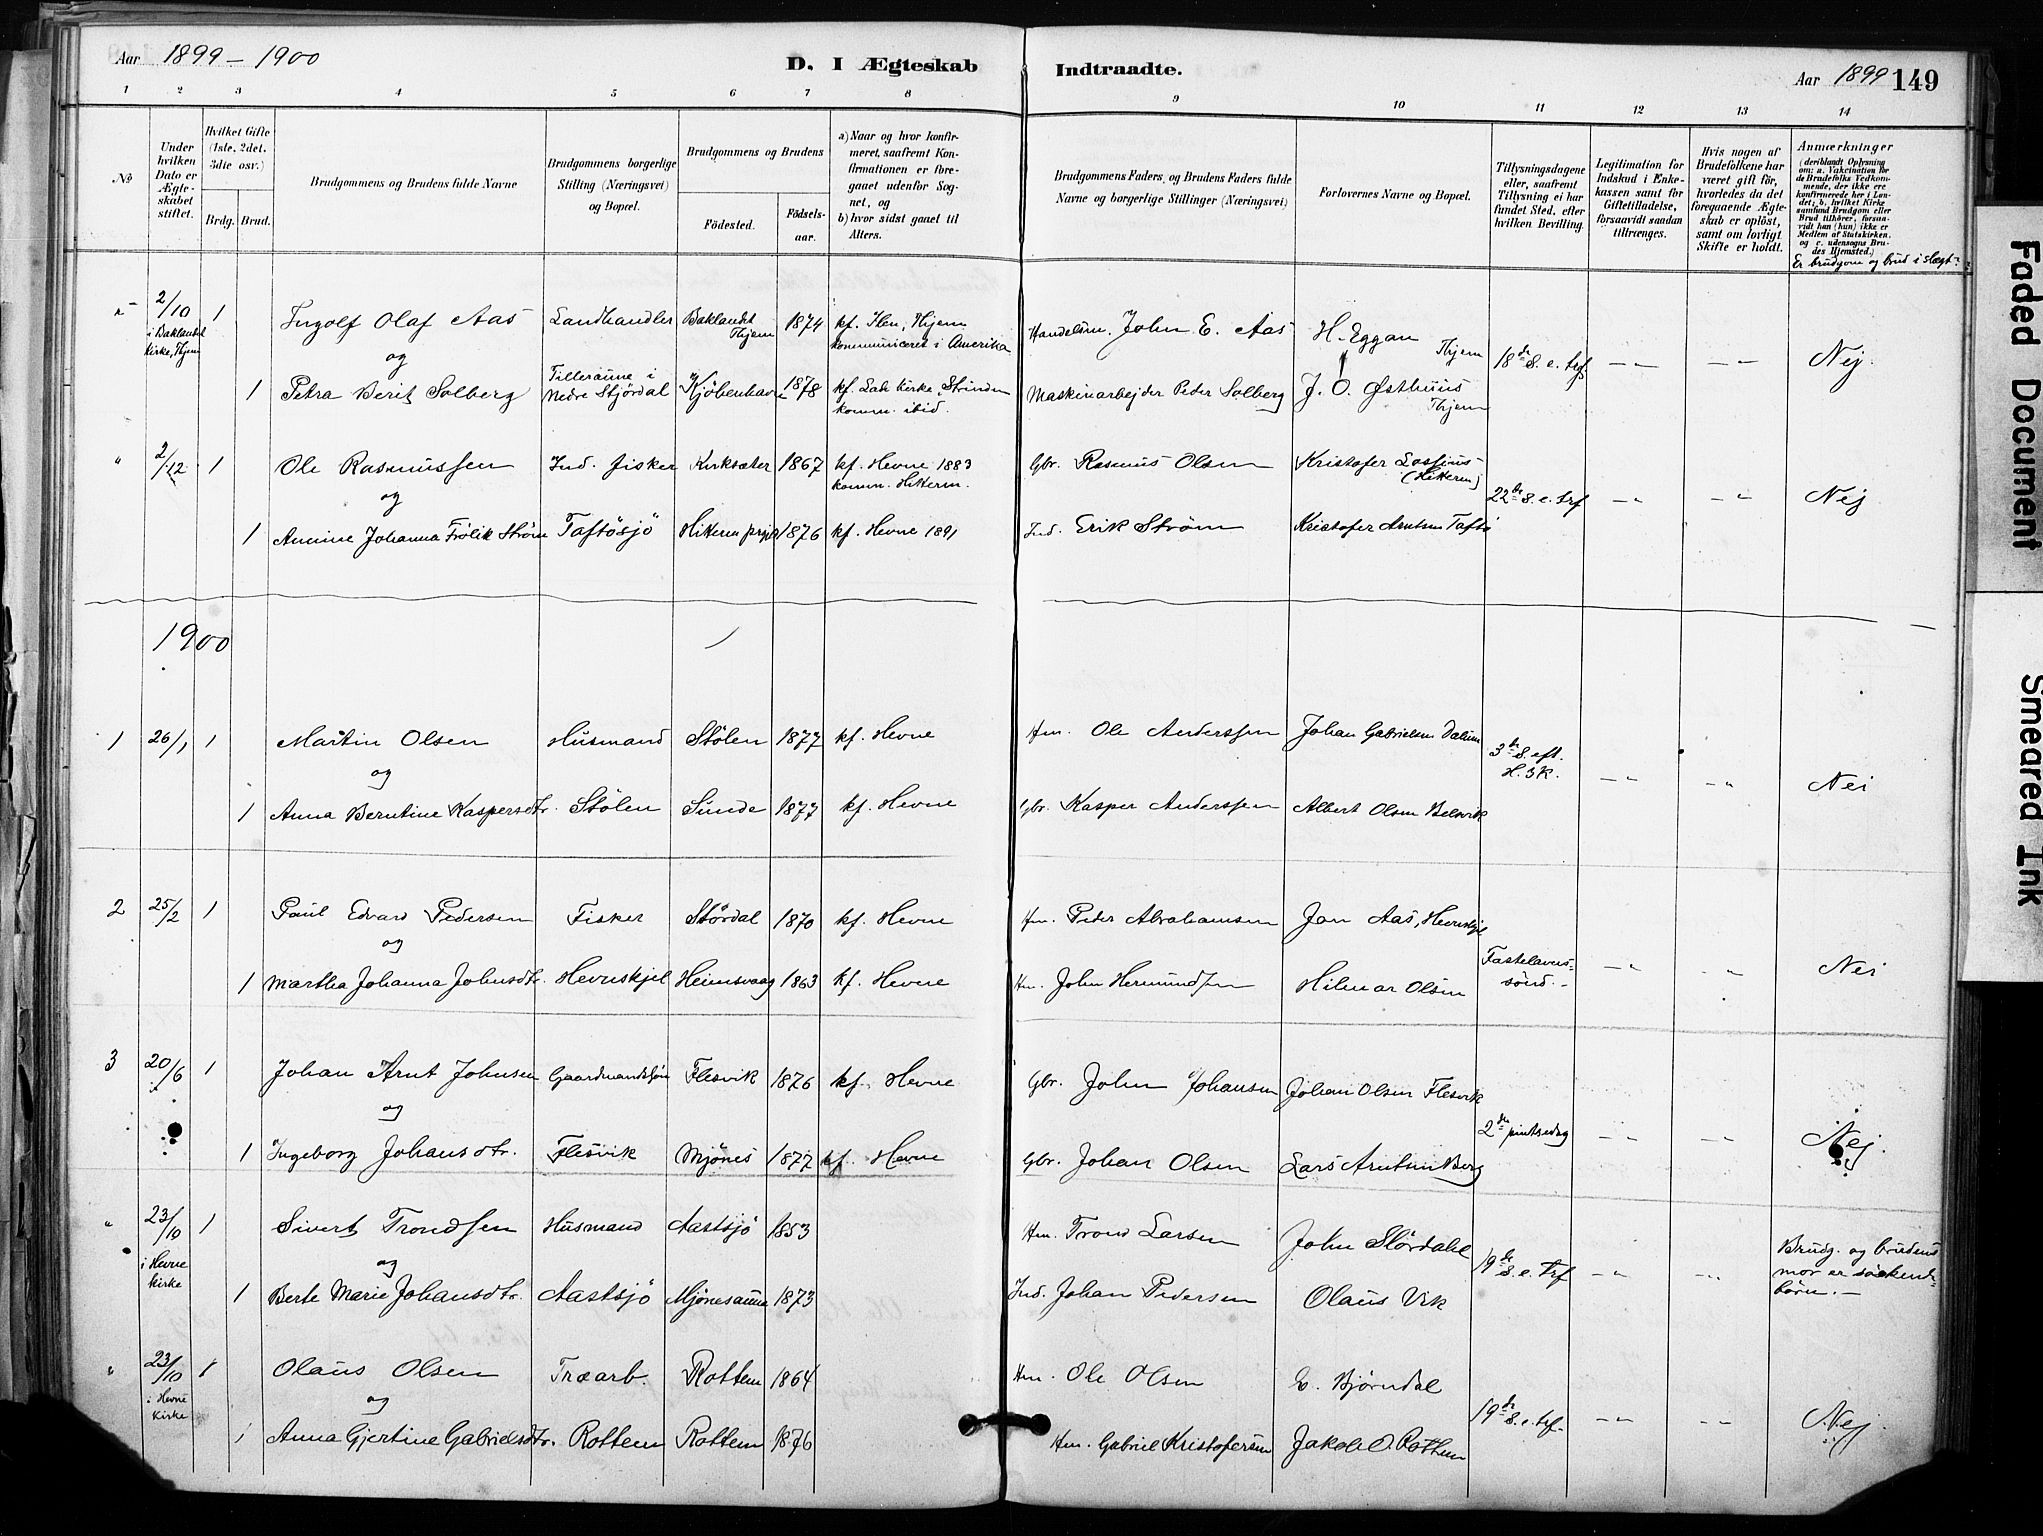 Aar 1899 – 1900
D. I Ægteskab
Indtraadte.
Aar 1899 149
1 2 3 4 5 6 7 8 9 10 11 12 13 14
No
Under hvilken Dato er Ægteskabet stiftet.
Hvilket Gifte (1ste, 2det, 3die osv.)
Brdg. Brud.
Brudgommens og Brudens fulde Navne
Brudgommens borgerlige Stilling (Næringsvei) og Bopæl.
Brudgommens og Brudens
Fødested.
Fødselsaar.
a) Naar og hvor konfirmeret, saafremt Konfirmationen er foregaaet udenfor Sognet, og
b) hvor sidst gaaet til Alters.
Brudgommens Faders, og Brudens Faders fulde Navne og borgerlige Stillinger (Næringsvei)
Forlovernes Navne og Bopæl.
Tillysningsdagene eller, saafremt Tillysning ei har fundet Sted, efter hvilken Bevilling.
Legitimation for Indskud i Enkekassen samt for Giftetilladelse, forsaavidt saadan tiltrænges.
Hvis nogen af Brudefolkene har været gift før, hvorledes da det foregaaende Ægteskab er opløst, samt om lovligt Skifte er holdt.
Anmærkninger
(deriblandt Oplysning om: a. Vakcination for de Brudefolks Vedkommende, der ikke ere konfirmerede her i Landet; b. hvilket Kirkesamfund Brudgom eller Brud tilhører, forsaavidt han (hun) ikke er Medlem af Statskirken. og c. udensogns Brudes Hjemsted.)
Er brudgom og brud i slægt?
2/10 i Baklandet Kirke, Thjem 1 Ingolf Olaf Aas Landhandler Baklandet Thjem 1874 kf. Ilen, Thjem kommuniceret i Amerika Handelsm. John E. Aas H. Eggan Thjem 18de S. e. tref. –"– –"– Nej.
og
1 Petra Berit Solberg Tilleraune i Nedre Stjördal Kjøbenhavn 1878 kf. Lade kirke, Strinden komm. ibid. Maskinarbejder Peder Solberg J. O. Østhuus Thjem
" 2/12 1 Ole Rasmussen Ind. fisker Kirksæter 1867 kf. Hevne 1883 komm. Hitteren. Gbr. Rasmus Olsen Kristofer Lossius (Hitteren) 22de S. e. trf –"– –"– Nej
og
1 Annine Johanna Frölik Ström Taftösjö Hitteren prgj 1876 kf. Hevne 1891 Ind. Erik Ström Kristofer Arntsen Taftö
1900
1 26/1 1 Martin Olsen Husmand Stölen 1877 kf. Hevne Hm. Ole Anderssen Johan Gabrielsen Dalum 3de S. eft. H. 3 K. –"– –"– Nei
og
1 Anna Berntine Kaspersdtr. Stölen Sunde 1877 kf. Hevne Gbr. Kasper Anderssen Albert Olsen Belsvik
2 25/2 1 Paul Edvard Pedersen Fisker Stördal 1870 kf. Hevne Hm. Peder Abrahamsen Jan Aas, Hevnskjel Fastelavnssönd. –"– –"– Nei
og
1 Martha Johanna Johnsdtr. Hevnskjel Heimsvaag 1863 kf. Hevne Hm. John Hermundsen Hilmar Olsen
3 20/6 1 Johan Arnt Johnsen Gaardmandssön Flesvik 1876 kf. Hevne Gbr. John Johansen Johan Olsen Flesvik 2den pintsedag –"– –"– Nej.
og
1 Ingeborg Johansdtr. Flesvik Mjönes 1877 kf. Hevne Gbr. Johan Olsen Lars Arntsen Berg
" 23/10 i Hevne kirke 1 Sivert Trondsen Husmand Aastsjö 1853 Hm. Trond Larsen John Stördahl 19de S. e. trf –"– –"– Brudg. og brudens mor er søskendebörn. –
og
1 Berte Marie Johansdtr. Aastsjö Mjönesaune 1873 Ind. Johan Pedersen Olaus Vik
" 23/10 i Hevne Kirke 1 Olaus Olsen Træarb. Rottem 1864 Hm. Ole Olsen E. Bjørndal 19de S. e. trf. –"– –"– Nej
og
1 Anna Gjertine Gabrielsdtr. Rottem Rottem 1876 Hm. Gabriel Kristofersen Jakob O. Rottem
Faded Document
Smeared Ink